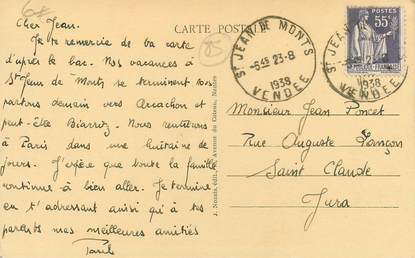 6€
Cher Jean.
CARTE POSTALE
85
Je te remercie de ta carte
d'après le bac. Nos vacances à
St Jean de Monts se terminent nous
partons demain vers Arcachon et
peut-être Biarritz. Nous rentrerons
à Paris dans une huitaine de
jours. J'espère que toute la famille
continue à bien aller. Je termine
en t'adressant ainsi qu'à tes
parents mes meilleures amitiés
Paul
J. Nozais, édit., Avenue du Coteau, Nantes
ST JEAN DE MONTS
23-8
1938
VENDEE
ST JEAN
1938
VENDEE
POSTES
55c
Monsieur Jean Poncet
Rue Auguste Lançon
Saint Claude
Jura